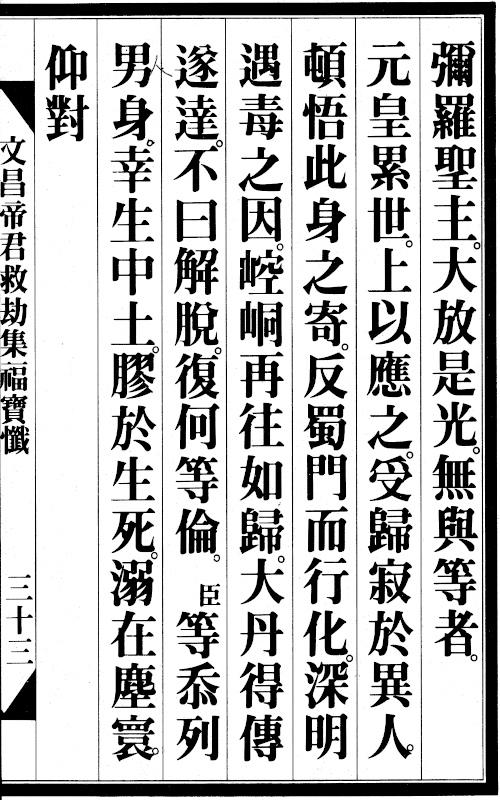 彌羅聖主。大放是光。無與等者。
元皇累世。上以應之。受歸寂於異人。
頓悟此身之寄。反蜀門而行化。深明
遇毒之因。崆峒再往如歸。大丹得傳
遂達。不曰解脫。復何等倫。臣等忝列
男身。幸生中土。膠於生死。溺在塵寰。
仰對
文昌帝君救劫集福寶懺
三十三